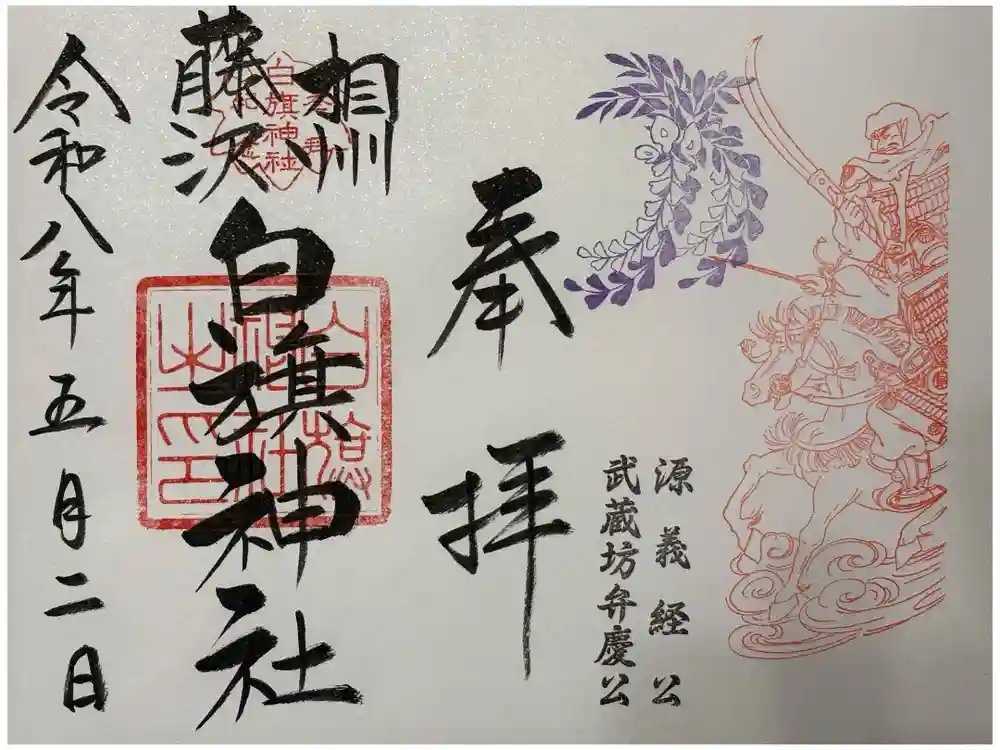 源義経公
武蔵坊弁慶公
奉拝
相州
藤沢
白旗神社
白旗神社
白旗神社之印
令和八年五月二日